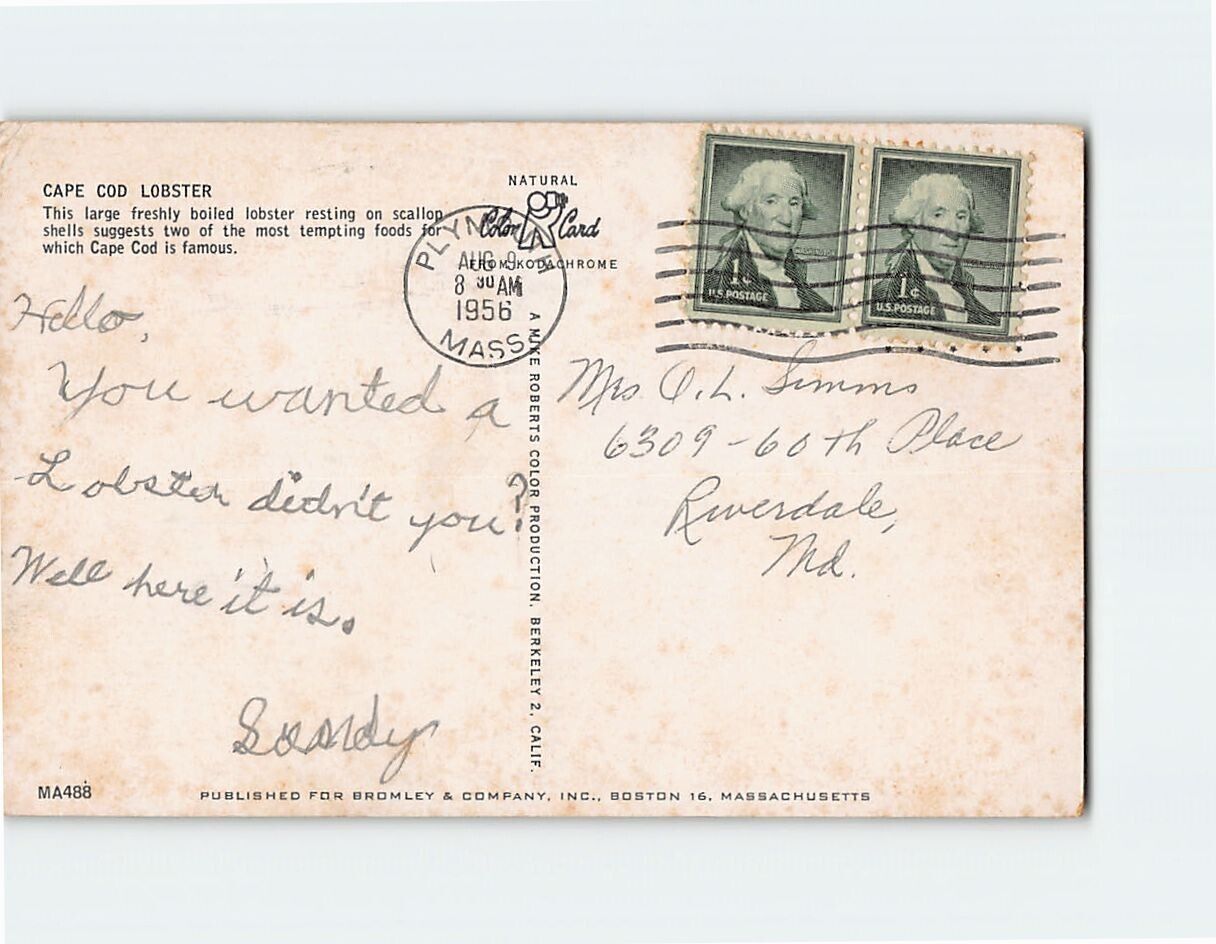 CAPE COD LOBSTER
This large freshly boiled lobster resting on scallop
shells suggests two of the most tempting foods for
which Cape Cod is famous.
NATURAL
Color Card
FROM KODACHROME
PLYMOUTH
AUG 9
8 30 AM
1956
MASS.
1¢
U.S. POSTAGE
1¢
U.S. POSTAGE
Hello,
You wanted a
Lobster didn't you?
Well here it is.
Sandy
A MIKE ROBERTS COLOR PRODUCTION. BERKELEY 2, CALIF.
Mrs. O.L. Simms
6309 - 60th Place
Riverdale,
Md.
MA488
PUBLISHED FOR BROMLEY & COMPANY, INC., BOSTON 16, MASSACHUSETTS